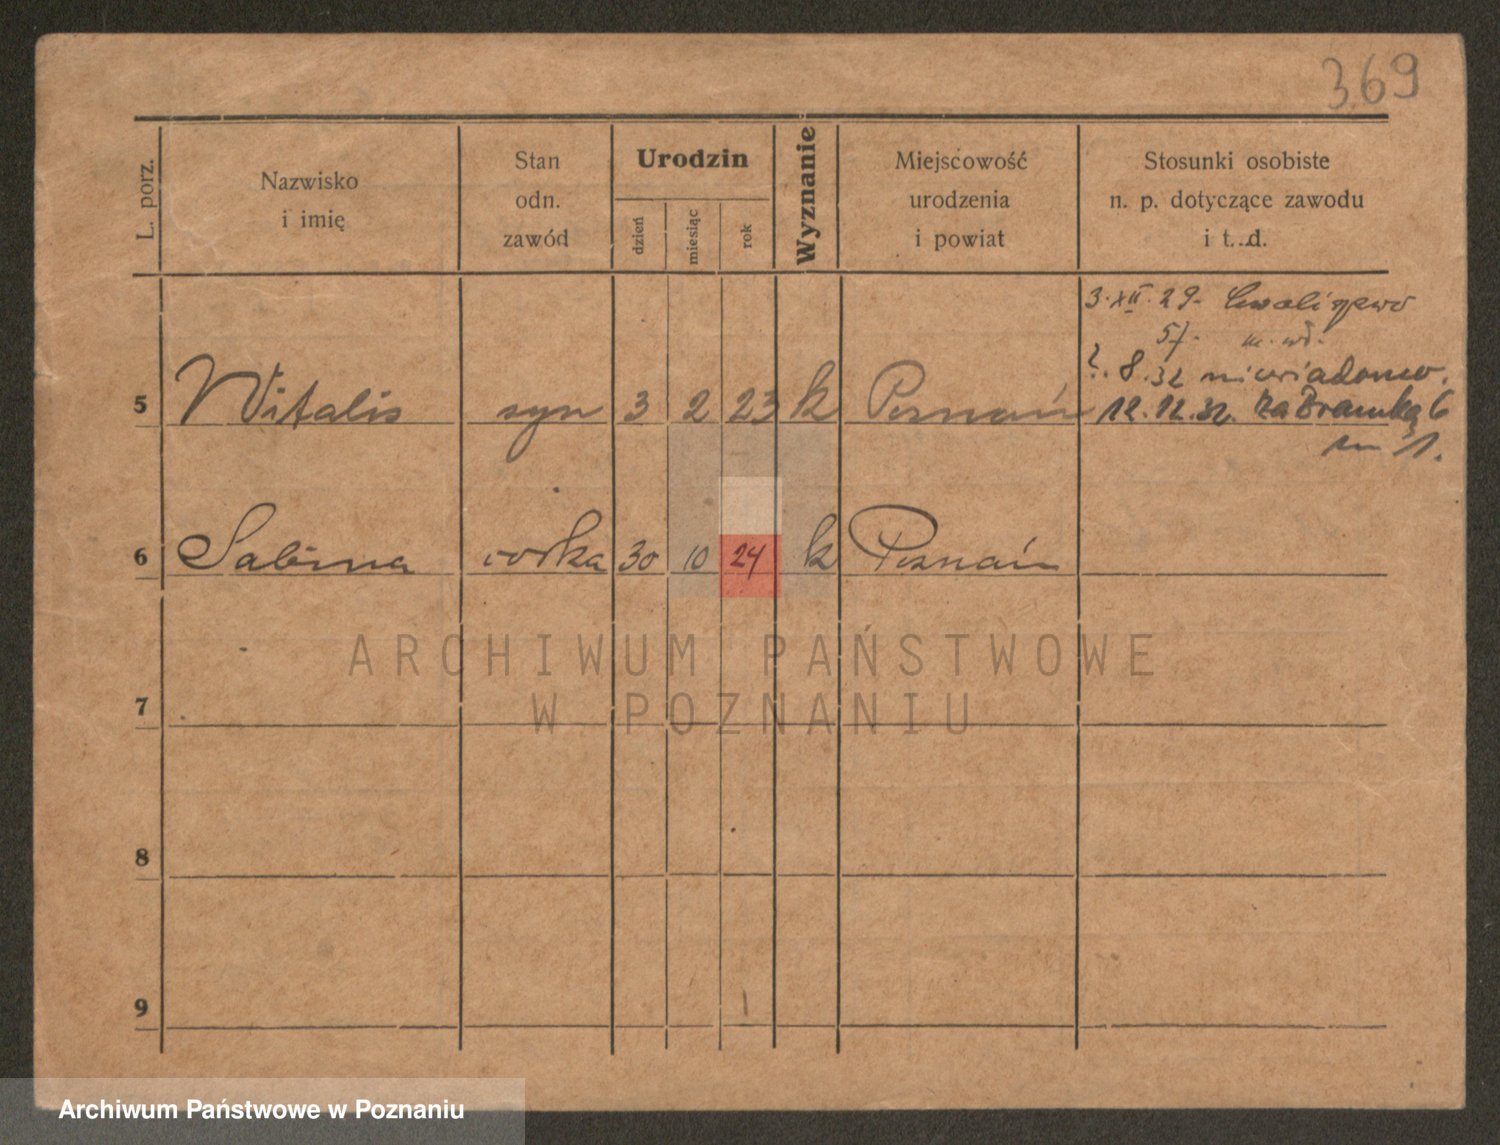 369
L. porz.
Nazwisko
i imię
Stan
odn.
zawód
Urodzin
dzień
miesiąc
rok
Wyznanie
Miejscowość
urodzenia
i powiat
Stosunki osobiste
n. p. dotyczące zawodu
i t. d.
3. XII. 29.
57. m. wł.
?. 8. 32 niewiadomo.
5 Witalis syn 3 2 23 k Poznań 12. 12. 32. Za Bramką 6
m 1.
6 Sabina corka 30 10 24 k Poznań
ARCHIWUM PAŃSTWOWE
W POZNANIU
7
8
9
Archiwum Państwowe w Poznaniu